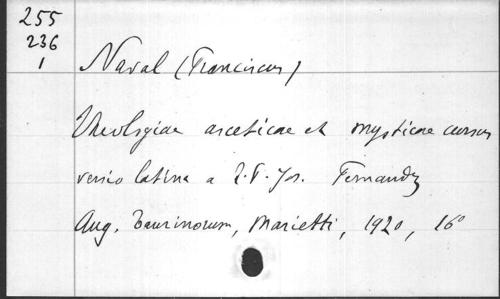 255
236
1
Naval (Franciscus)
Theologiae asceticae et mysticae cursus
versio latina a R. P. Jos. Fernandez
Aug. Taurinorum, Marietti, 1920, 16°